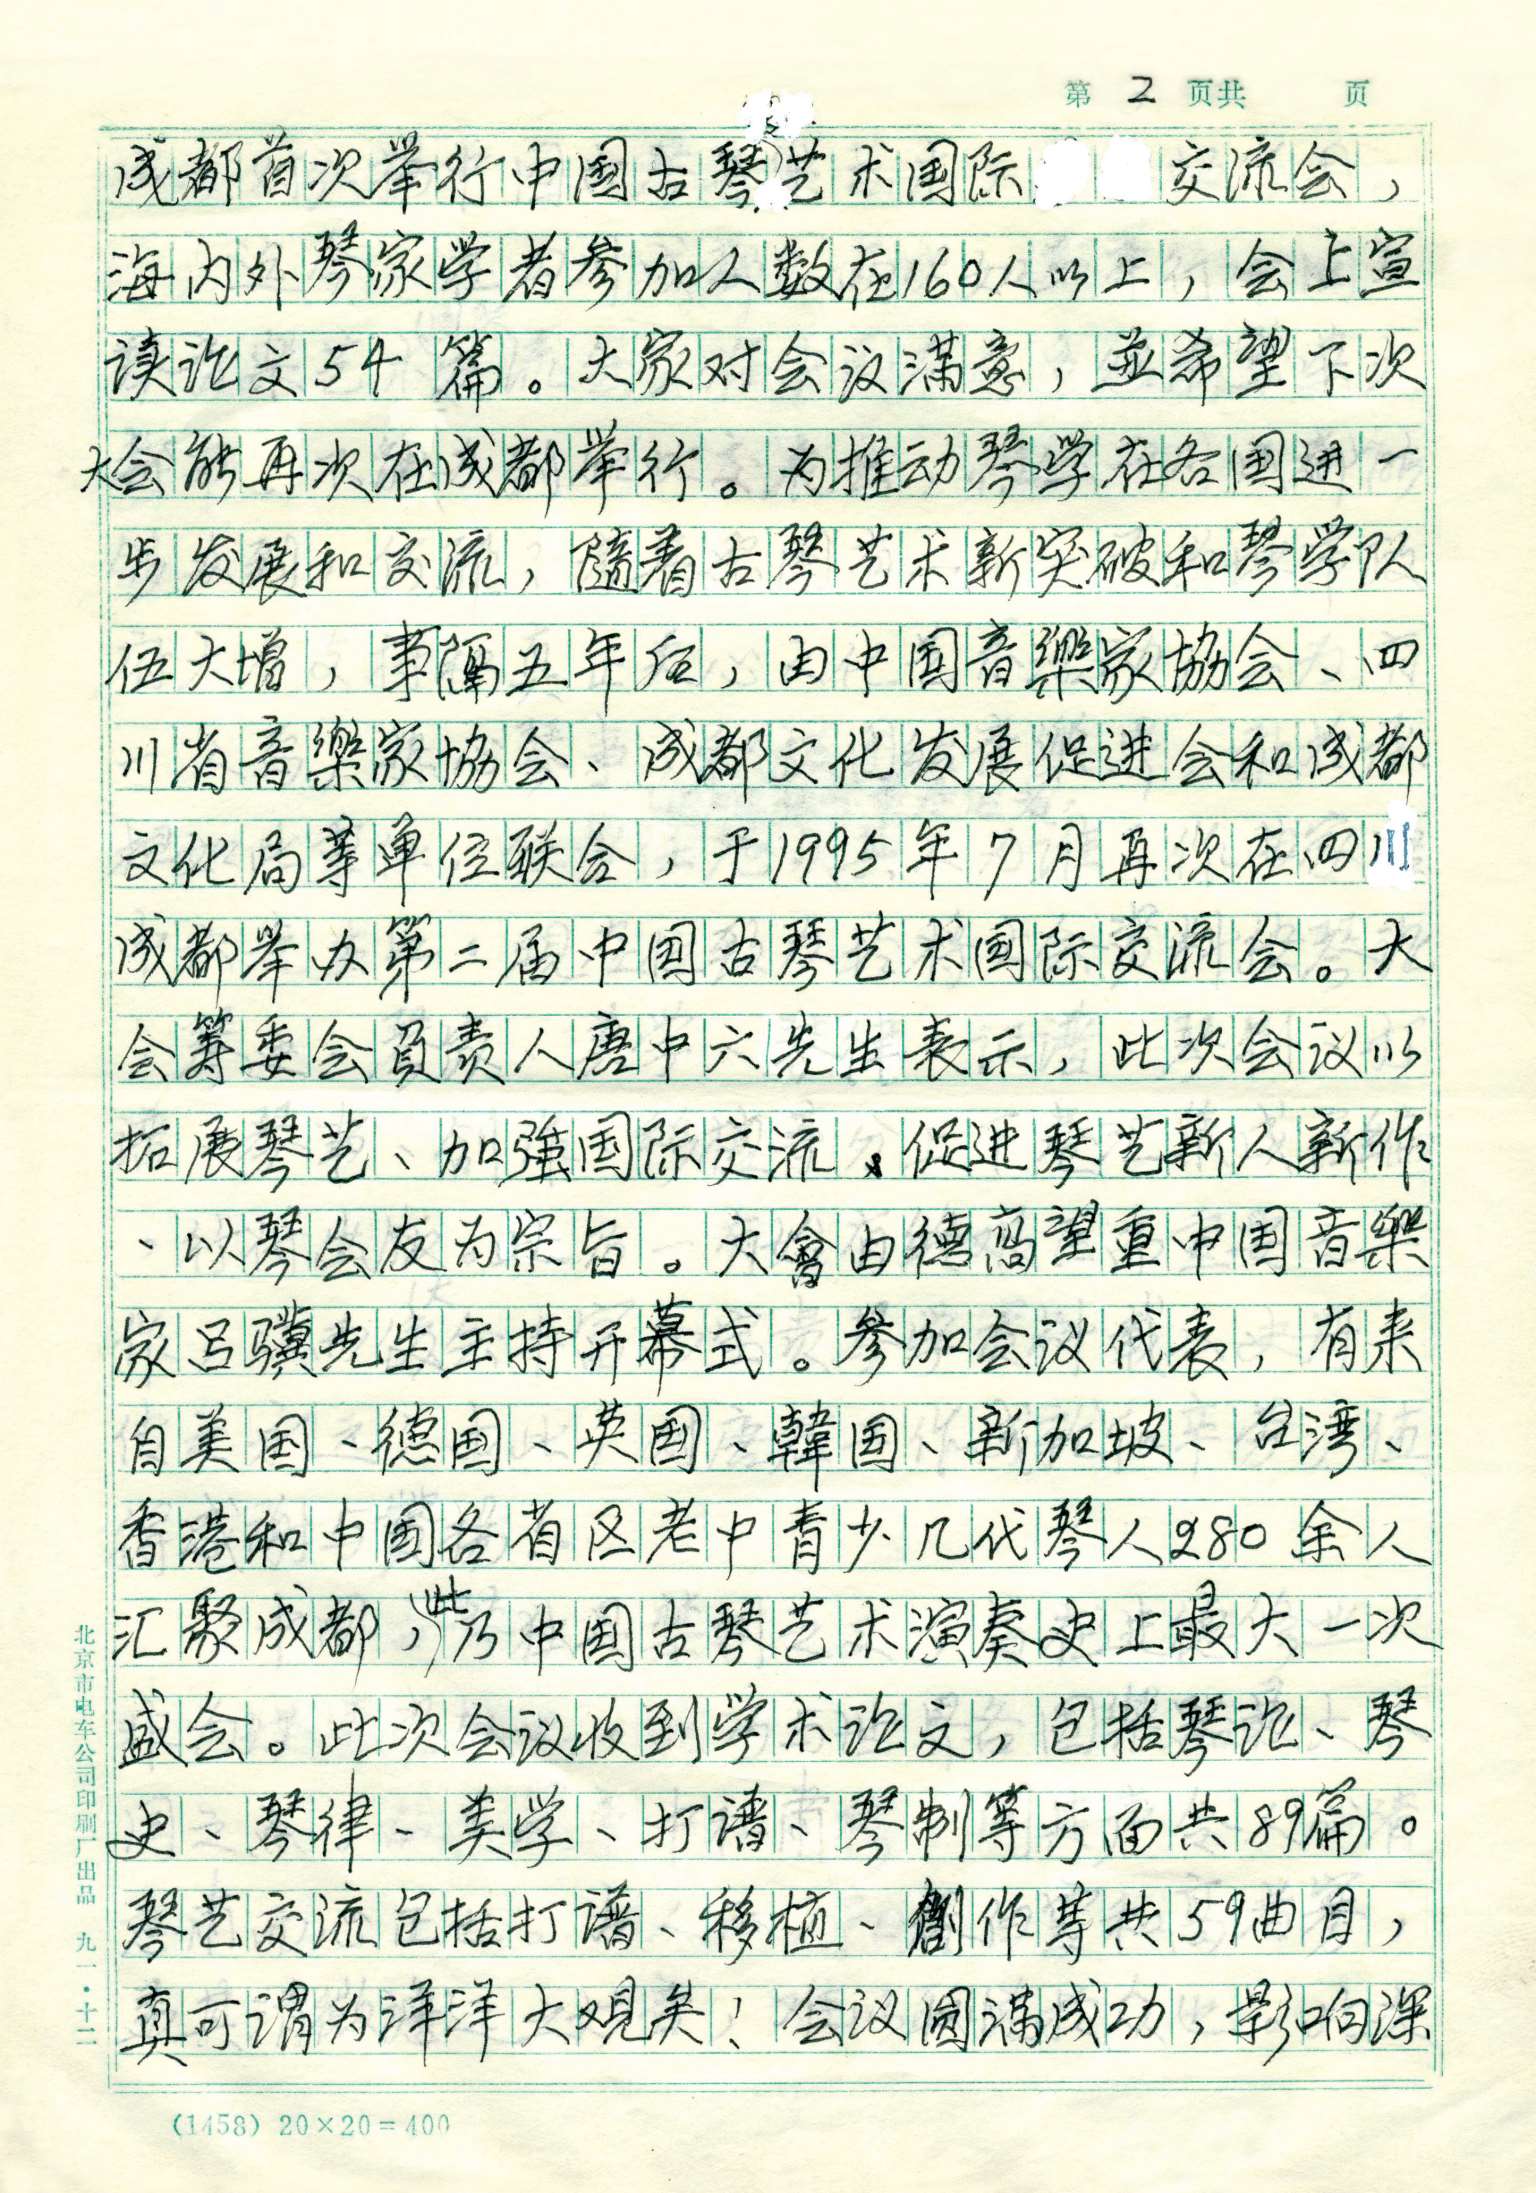 第 2 页共 页
成都首次举行中国古琴艺术国际交流会，
海内外琴家学者参加人数在160人以上，会上宣
读论文54篇。大家对会议满意，并希望下次
大会能再次在成都举行。为推动琴学在各国进一
步发展和交流，随着古琴艺术新突破和琴学队
伍大增，事隔五年后，由中国音樂家协会、四
川省音樂家协会、成都文化发展促进会和成都
文化局等单位联合，于1995年7月再次在四川
成都举办第二届中国古琴艺术国际交流会。大
会筹委会負责人唐中六先生表示，此次会议以
拓展琴艺、加强国际交流、促进琴艺新人新作
、以琴会友为宗旨。大會由德高望重中国音樂
家吕骥先生主持开幕式。参加会议代表，有来
自美国、德国、英国、韓国、新加坡、台湾、
香港和中国各省区老中青少几代琴人280余人
汇聚成都，此乃中国古琴艺术演奏史上最大一次
盛会。此次会议收到学术论文，包括琴论、琴
史、琴律、美学、打谱、琴制等方面共89篇。
琴艺交流包括打谱、移植、創作等共59曲目，
真可谓为洋洋大观矣！会议圆满成功，影响深
北京市电车公司印刷厂出品 九一·十二
(1458) 20×20=400